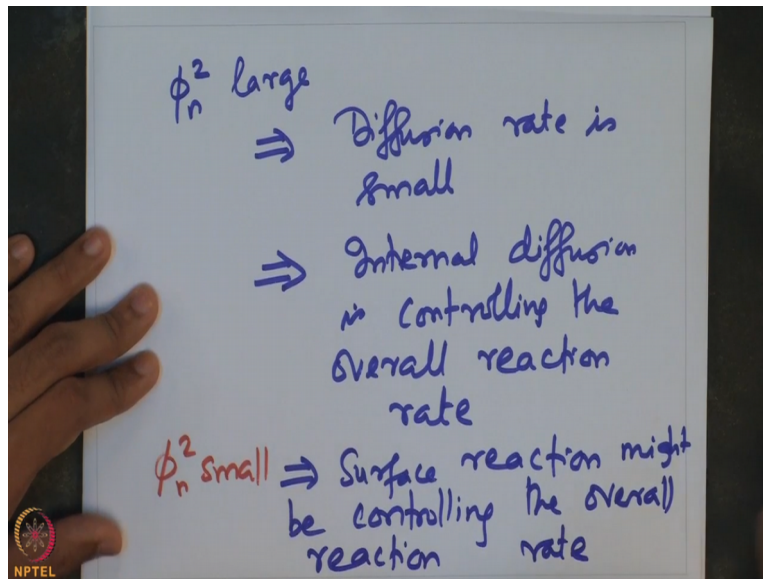 ϕₙ² large
⇒ Diffusion rate is
small
⇒ Internal diffusion
is controlling the
overall reaction
rate
ϕₙ² small ⇒ Surface reaction might
be controlling the overall
reaction rate
NPTEL